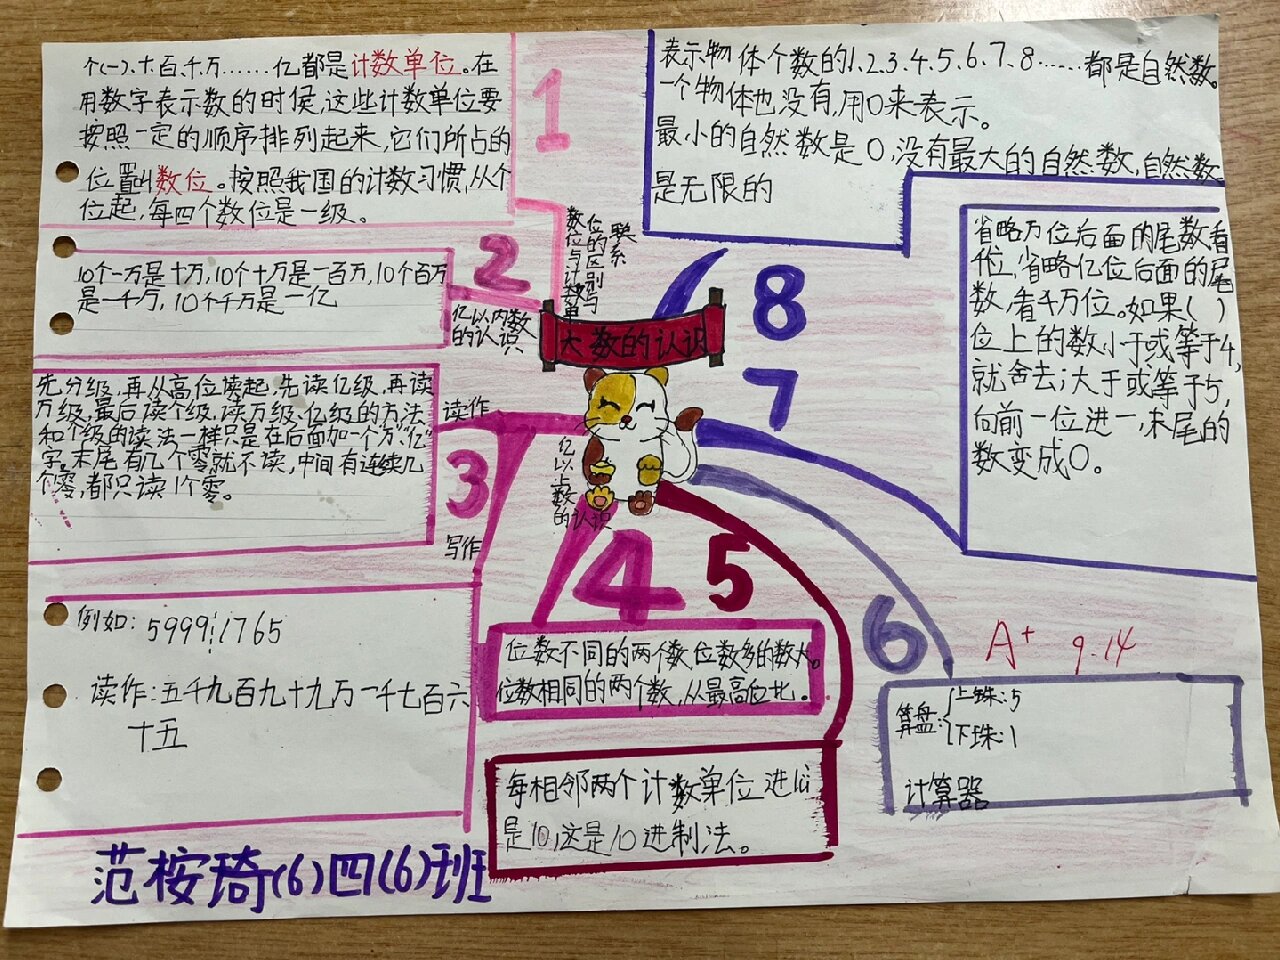 个(一)、十、百、千、万……亿都是计数单位。在
用数字表示数的时候,这些计数单位要
按照一定的顺序排列起来,它们所占的
位置叫数位。按照我国的计数习惯,从个
位起,每四个数位是一级。
1
数位与计数单
位的区别与
联系
10个一万是十万,10个十万是一百万,10个百万
是一千万,10个千万是一亿
2
亿以内数
的认识
先分级,再从高位读起,先读亿级,再读
万级,最后读个级,读万级、亿级的方法
和个级的读法一样只是在后面加一个"万""亿"
字。末尾有几个零就不读,中间有连续几
个零,都只读1个零。
读作
3
写作
例如:5999¦1765
读作:五千九百九十九万一千七百六
十五
大数的认识
亿以上数
的认识
4
位数不同的两个数位数多的数大。
位数相同的两个数,从最高位比。
5
每相邻两个计数单位进率
是10,这是10进制法。
6
算盘:{上珠:5
下珠:1
计算器
7
省略万位后面的尾数看
千位,省略亿位后面的尾
数,看千万位。如果( )
位上的数小于或等于4,
就舍去;大于或等于5,
向前一位进一,末尾的
数变成0。
8
表示物体个数的1、2、3、4、5、6、7、8……都是自然数。
一个物体也没有,用0来表示。
最小的自然数是0,没有最大的自然数,自然数
是无限的
A+ 9.14
范桉琦(6)四(6)班